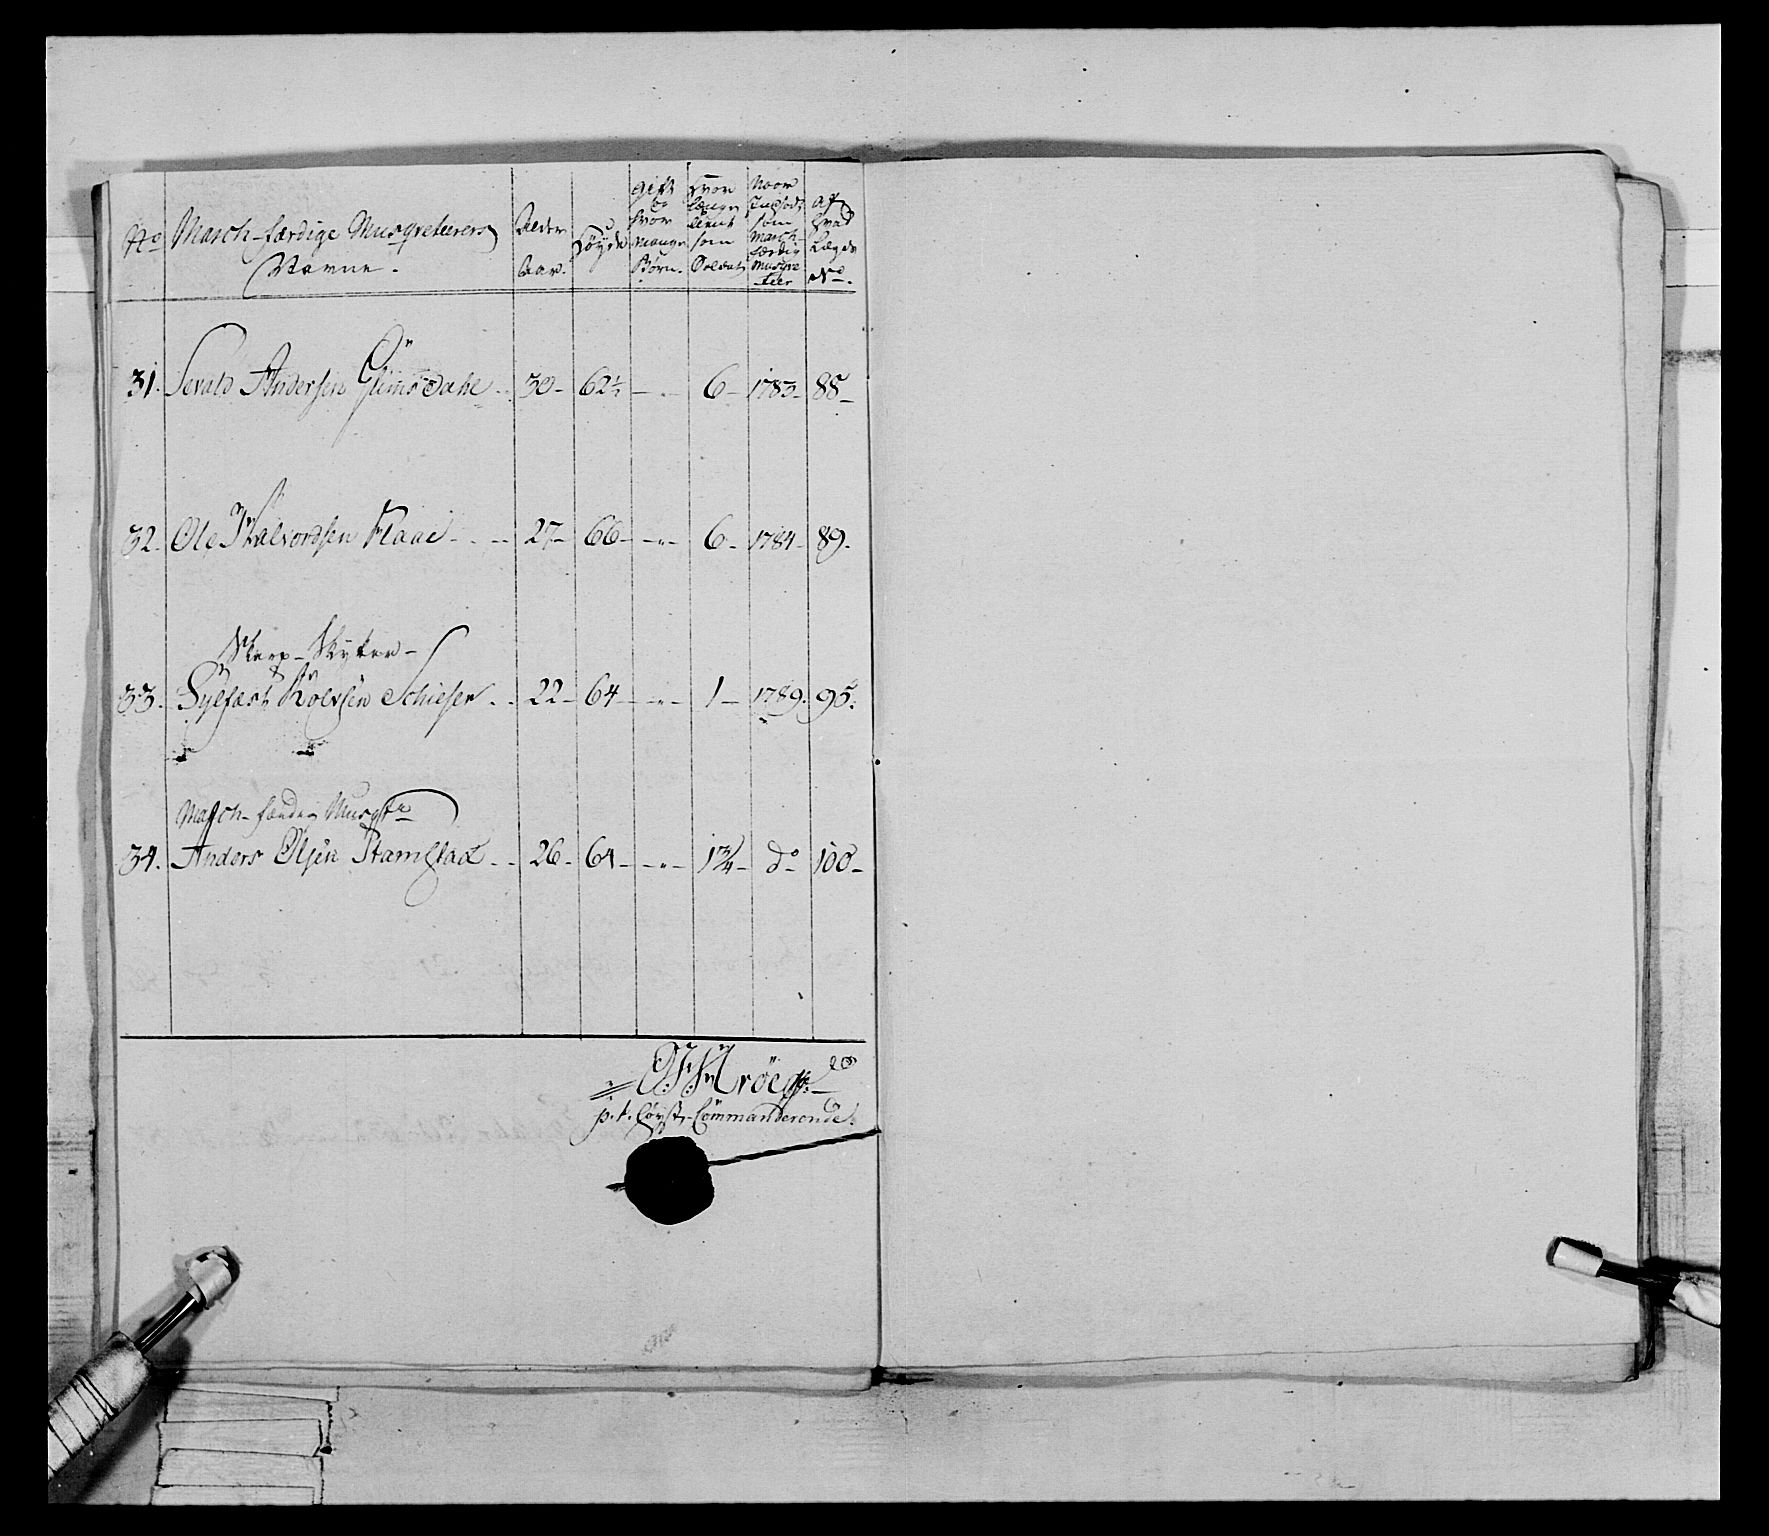 No March-færdige Musqveterers Navne. Alder Aar. Høyde gift og hvor mange Børn. Hvor længe tient som Soldat Naar Indsadt som March-færdig Musqveteer Af hvad Lægds No.
31. Sevald Andersen Giimsdahl .. 30 - 62½ - " - 6 - 1783 - 88 -
32. Ole Halvordsen Flaae - . -- 27 - 66 - " - 6 - 1784 - 89.
Skarp-Skytter -
33. Sylfæst Kolvsen Schiefer . . 22 - 64 - " - 1 - 1789. 95.
March-færdig Musqt.
34. Anders Olsen Stamstad - - 26 - 64 - " - 1¾ - do - 100 -
p.t. høyst-Commanderende.